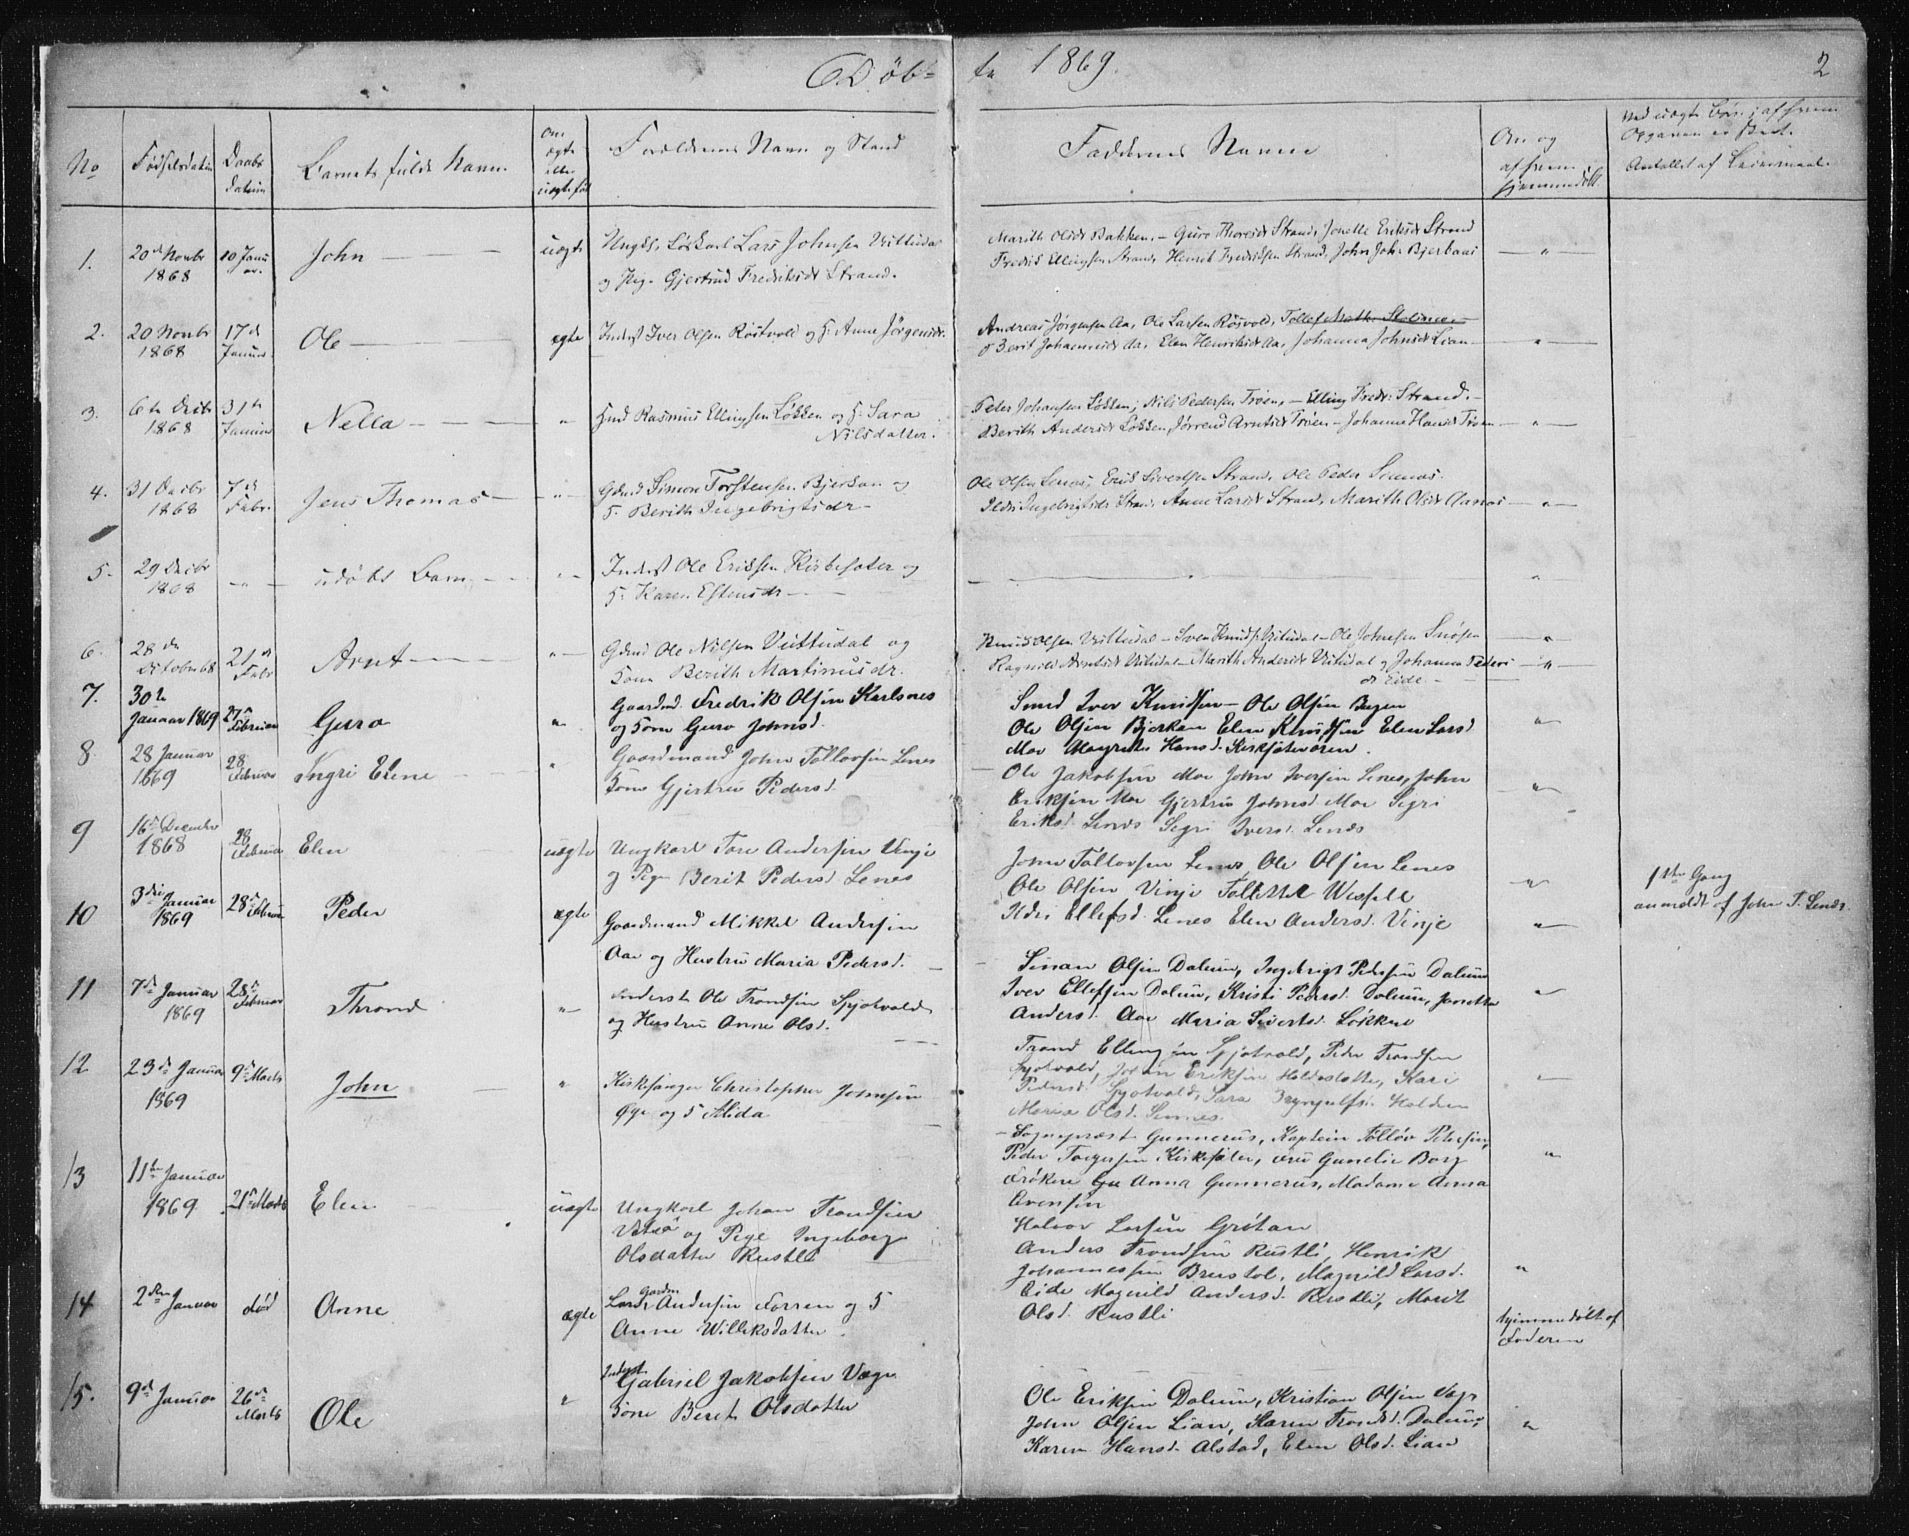 Døb-
te 1869.
2
No
Fødselsdatum
Daabs
datum
Barnets fulde Navn.
Om
ægte
eller
uægte fød
Forældrenes Navn og Stand
Faddernes Navne
Om og
af hvem
hjemmedøbt
Ved uægte Børn; af hvem
Opgaven er skeet.
Antallet af Leiermaal.
1.
20de Novbr
1868
10 Janu
ar.
John
uægte
Ungk. Lars Johnsen Vittudal
og Pige Gjertrud Fredriksdr Strand.
Marith Olsdr Bakken. - Guro Thoresdr Strand, Jonette Eriksdr Strand
Fredrik Ellingsen Strand, Henrik Fredriksen Strand, John Joh.
2.
20 Novbr
1868
17de
Januar
Ole
ægte
Inderst Iver Olsen Røstvold og H. Anne Jørgensdr.
Andreas Jørgensen Aa, Ole Larsen Røsvold,
Berit Johannesdr Aa, Elen Henriksdr Aa, Johanna Johnsdr Lian
3.
6te Decbr
1868
31te
Januar
Nella
"
Hmd Rasmus Ellingsen Løkken og H. Sara
Nilsdatter.
Peter Johansen Løkken, Nils Pedersen Trøen, - Elling Fredr. Strand.
Berith Andersdr Løkken, Jørrend Arntsdr Trøen - Johanne Hansdr Trøen
4.
31 Decbr
1868
7de
Febr.
Jens Thomas
"
Gdmd Simon Torstensen Bjerkan og
H. Berith Ingebrigtsdr
Ole Olsen Lenes, Erik Sivertsen Strand, Ole Peder
Ildri Ingebrigtsdr Strand, Anne Larsdr Strand, Marith Olsdr
5.
29 Decbr
1868
udøbt Barn
"
Inderst Ole Eriksen Kirksæter og
H. Karen Estensdr
6.
28de
October 68
21de
Febr
Arnt
"
Gdmd Ole Nilsen Vuttudal og
Kone Berith Martinusdr.
Knud Olsen Vittudal - Sven Knuds. Vitudal - Ole Johnsen Snøsen
Ragnild Arntsdr Vitudal - Marith Andersdr Vitudal og Johanna Peders
dr Eide
7.
30te
Januar 1869
27de
Februar
Guro
"
Gaardmd. Fredrik Olsen Karlsnes
og Kone Guro Johnsd.
Smed Iver Knudsen - Ole Olsen
Ole Olsen Bjerkan Elen Knudsen Elen Larsd
Moe Magrete Hansd. Kirksæterøren.
8
28 Januar
1869
28
Februar
Ingri Elene
"
Gaardmand John Tollovsen Lenes
Kone Gjertru Pedersd.
Ole Jakobsen Moe John Iversen Lenes, John
Eriksen Moe Gjertru Johnsd. Moe Segri
Eriksd. Lenes Segri Iversd. Lenes
9
16de December
1868
28
Februar
Elen
uægte
Ungkarl Tore Andersen Vinje
og Pige Berit Pedersd. Lenes
John Tollovsen Lenes, Ole Olsen Lenes
Ole Olsen Vinje Tollettel
Ildri Ellefsd. Lenes Elen Andersd. Vinje
1ste Gang
anmeldt af John T. Lenes.
10
3die Januar
1869
28de Februar
Peder
ægte
Gaardmand Mikkel Andersen
Aae og Hustru Maria Pedersd.
Simon Olsen Dalum, Ingebrigt Pedersen Dalum
Iver Ellefsen Dalum, Kristi Pedersd. Dalum, Jonette
Andersd. Aae Maria Sivertsd. Løkken
11
7de Januar
1869
28de
Februar
Thrond
"
Inderst Ole Trondsen Spjotvold
og Hustru Anne Olsd.
Trond Ellingsen Spjotvold, Peder Trondsen
Spjotvold, Johan Eriksen Holdeslette, Kari
Pedersd. Spjotvold, Sara Brynjulfs. Holden
Maria Olsd. Lennes.
12
23de Januar
1869
9de Marts
John
"
Kirkesanger Christopher Johnsen
Øye og H Alida
Sogneprest Gunnerus, Kaptein Tolløv Petersen,
Peder Torgersen Kirksæter, Fru Gunelie Borg
Frøken Anna Gunnerus, Madame Anna
Evensen
13
11te Januar
1869
21de Marts
Elen
uægte
Ungkarl Johan Trondsen
og Pige Ingeborg
Olsdatter Rustli
Halvor Larsen Grøtan
Anders Trondsen Rustli, Henrik
Johannessen Brustol, Magnild Larsd.
Eide Magnild Andersd. Rustli, Marit
Olsd. Rustli
14
2den Januar
død
Anne
ægte
Gardm
Lars Andersen Forren og H
Anne Willeksdatter.
hjemmedøbt af
Faderen
15.
9de Januar
26de
Marts
Ole
"
Inderst
Gabriel Jakobsen Vagn
Kone Beret Olsdatter
Ole Eriksen Dalum, Kristian Olsen Vagn
John Olsen Lian, Karen Trondsd. Dalum,
Karen Hansd. Alstad, Elen Olsd. Lian